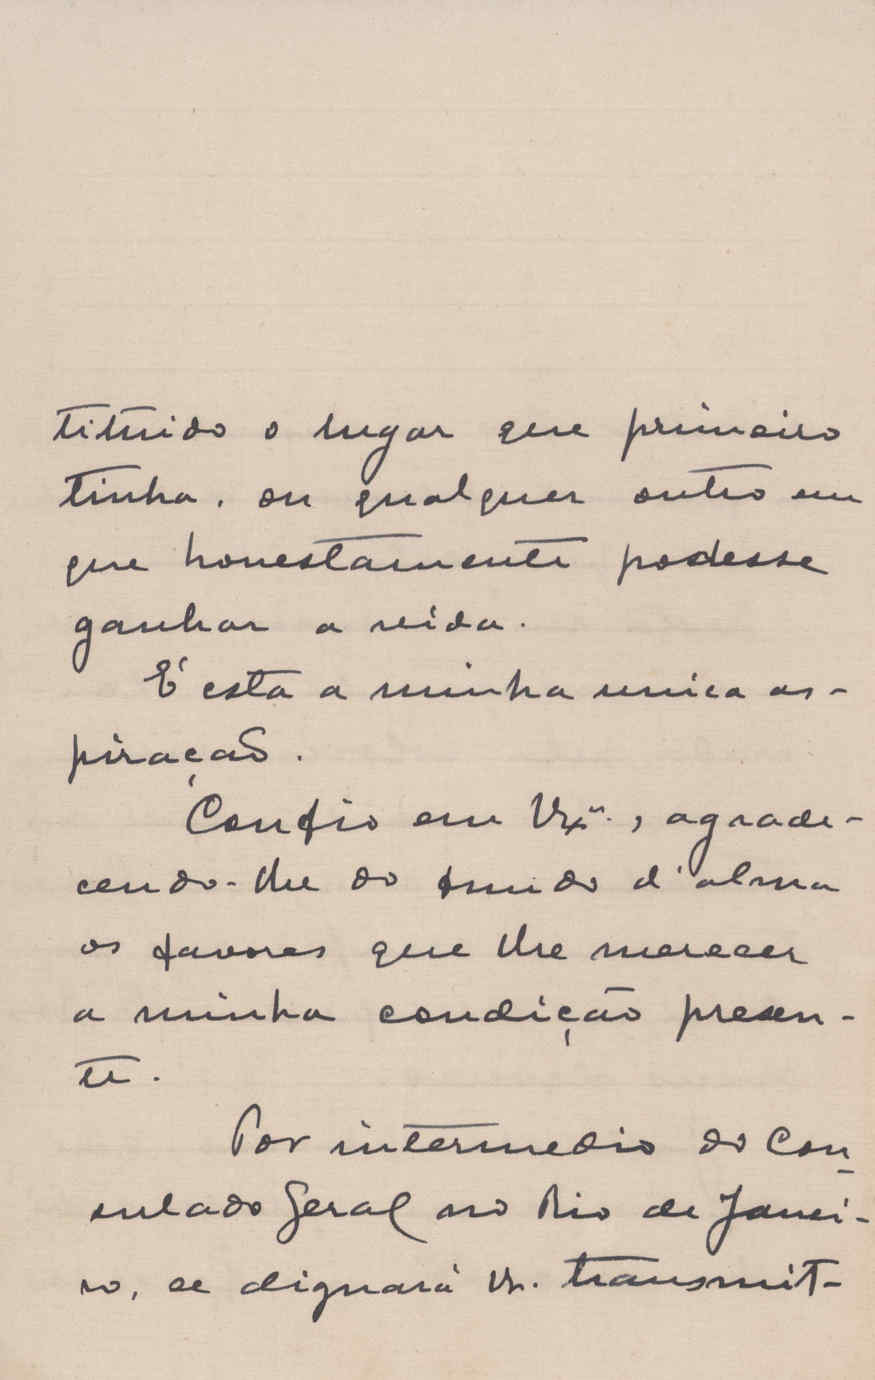 tituido o lugar que primeiro
tinha, ou qualquer outro em
que honestamente podesse
ganhar a vida.
É esta a minha unica as-
piração.
Confio em Vxª., agrade-
cendo-lhe do fundo d'alma
os favores que lhe merecer
a minha condição presen-
te.
Por intermedio do Con-
sulado Geral no Rio de Janei-
ro, se dignará Vx. transmit-